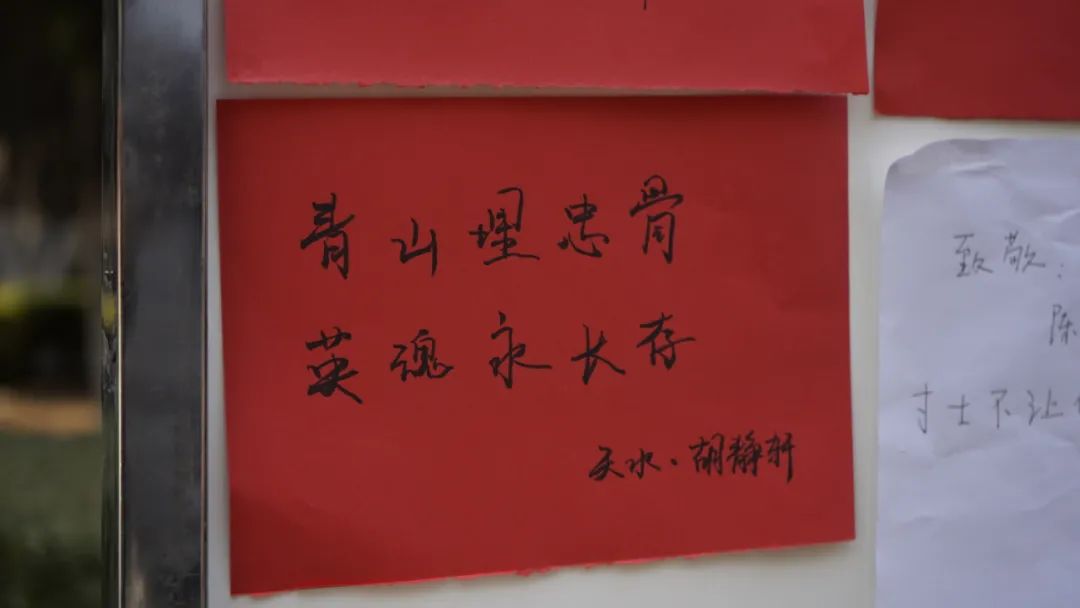 青山埋忠骨
英魂永长存
天水·胡静轩
致敬：
陈
寸土不让